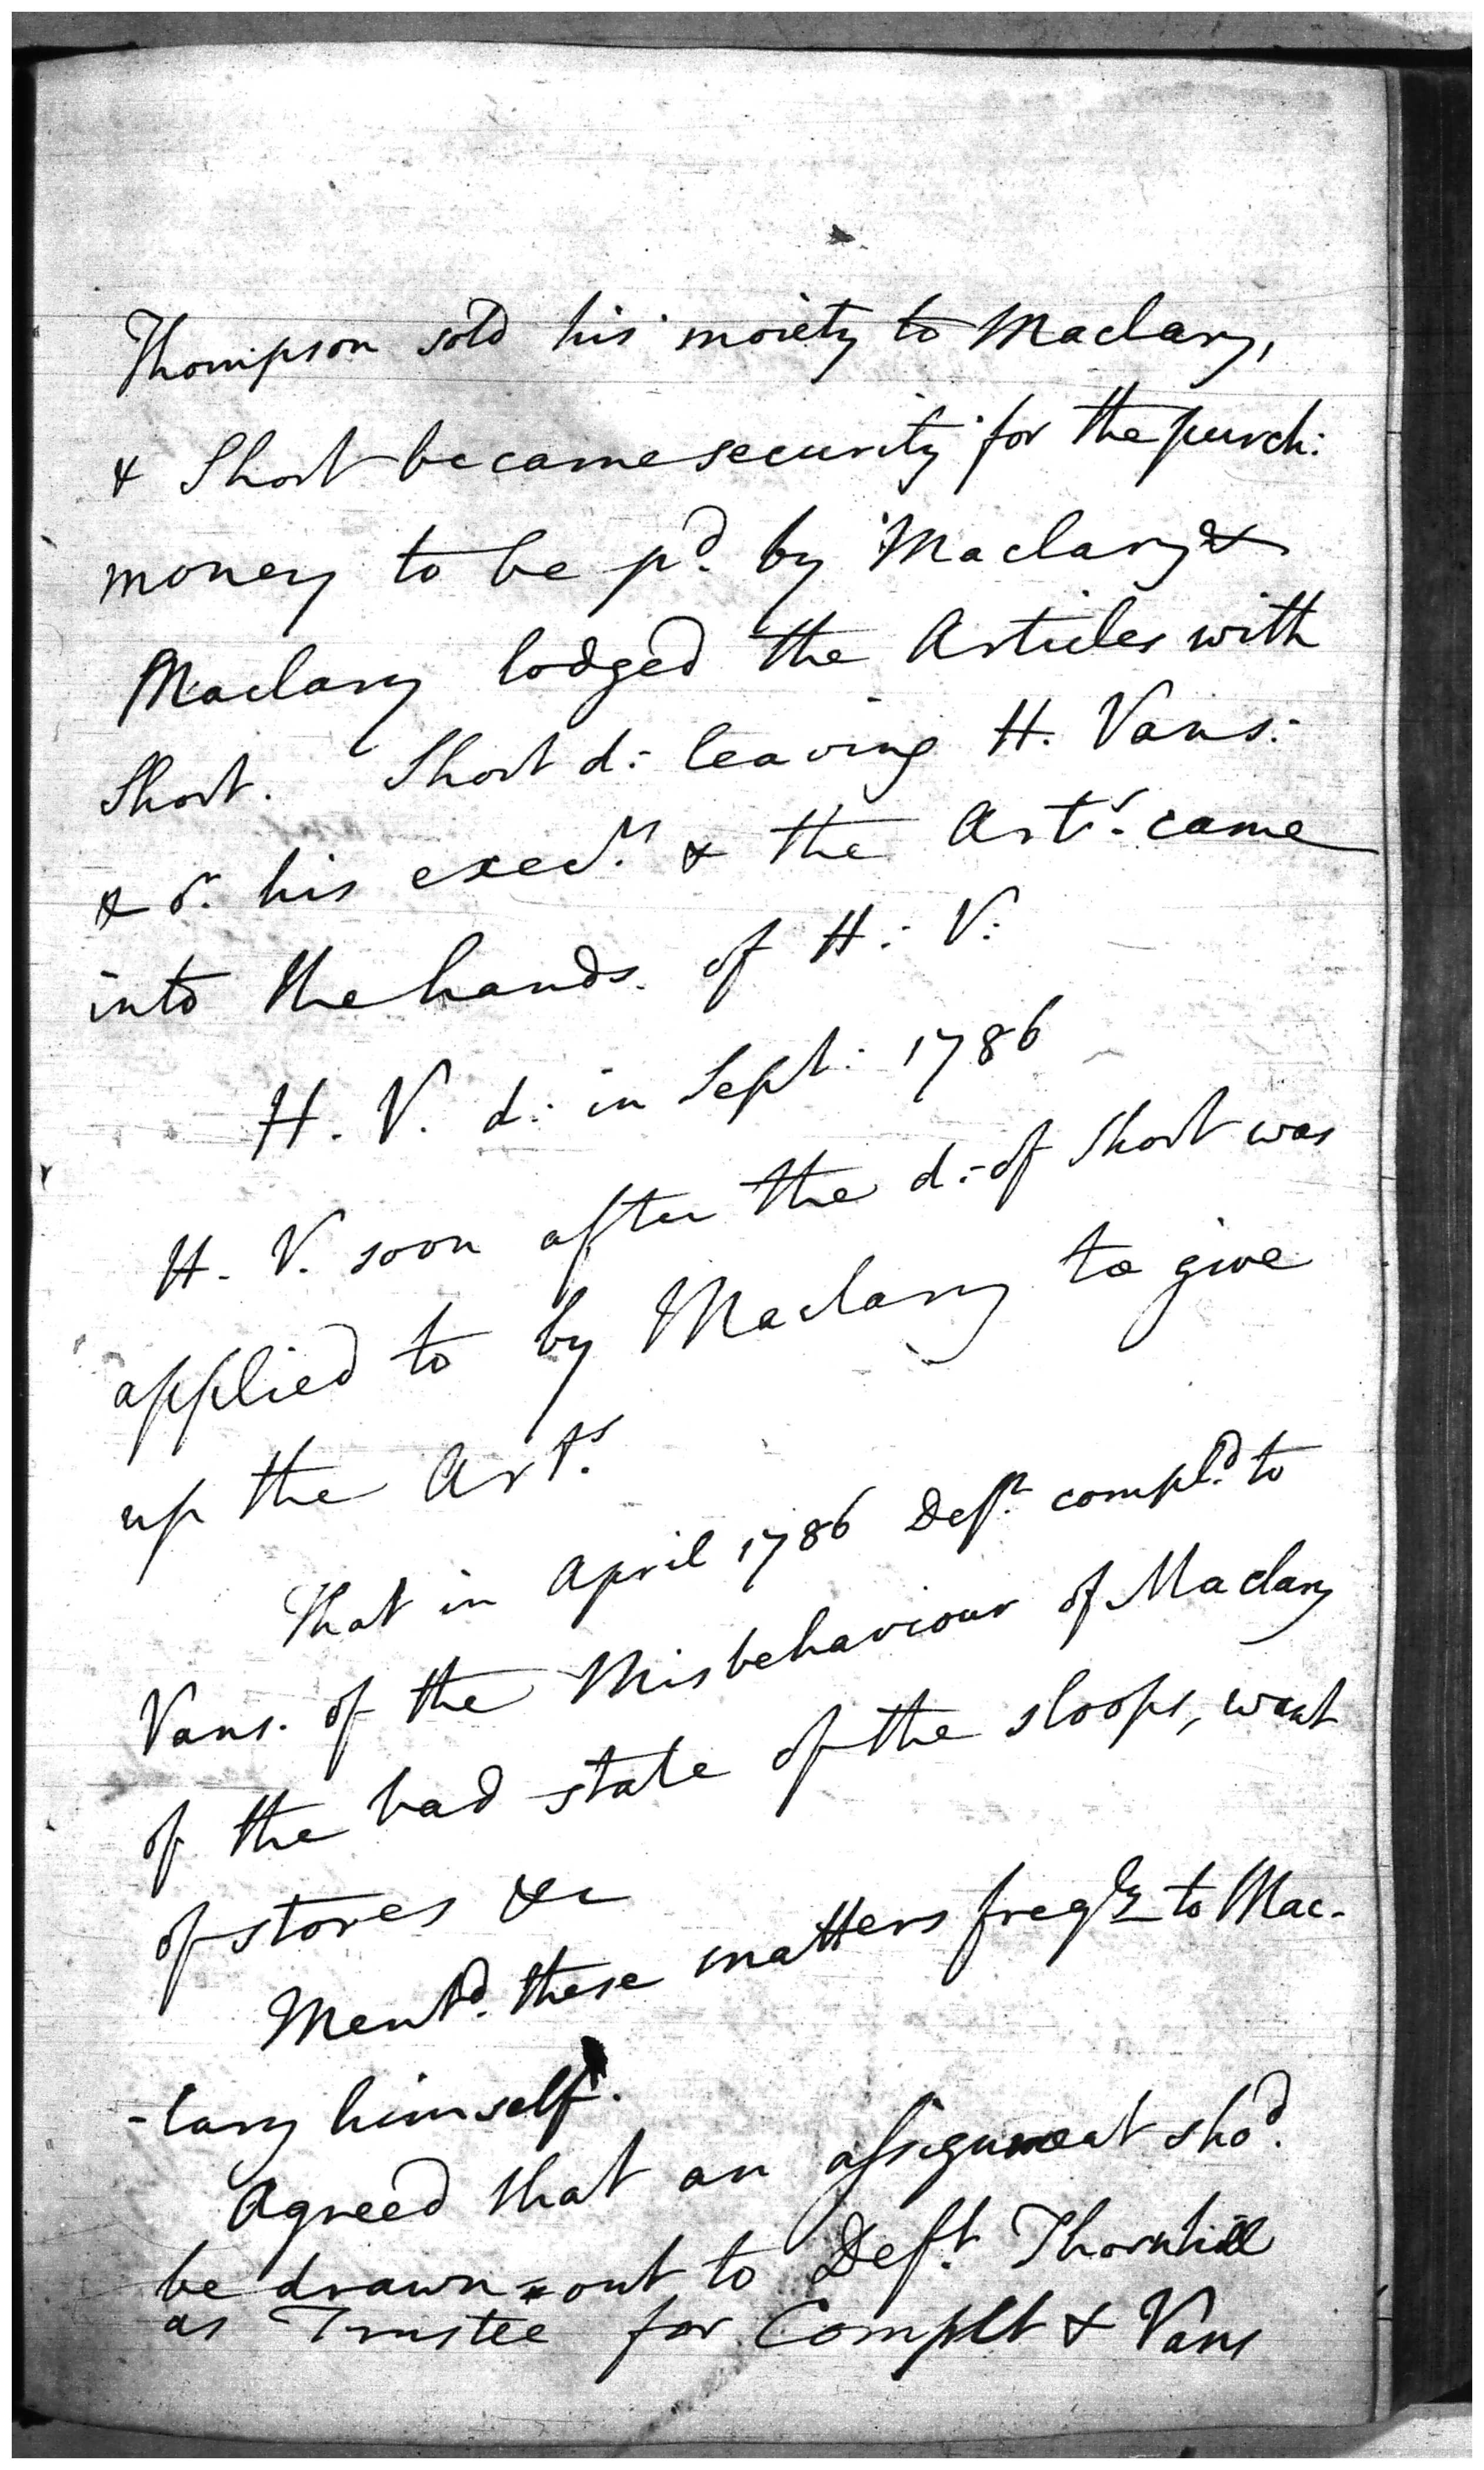 Thompson sold his moiety to Maclary,
& Short became security for the purch:
money to be pd. by Maclary &
Maclary lodged the Articles with
Short. Short d: leaving H. Vans:
& or. his execrs. & the Arts. came
into the hands of H: V:
H. V. d: in Sept: 1786
H. V. soon after the d: of Short was
applied to by Maclary to give
up the Arts.
That in April 1786 Deft. compld. to
Vans. of the Misbehaviour of Maclary
of the bad state of the sloops, want
of stores &c
Mentd. these matters freqly to Mac-
-lary himself.
Agreed that an assignment shod.
be drawn out to Deft. Thornhill
as Trustee for Complt & Vans